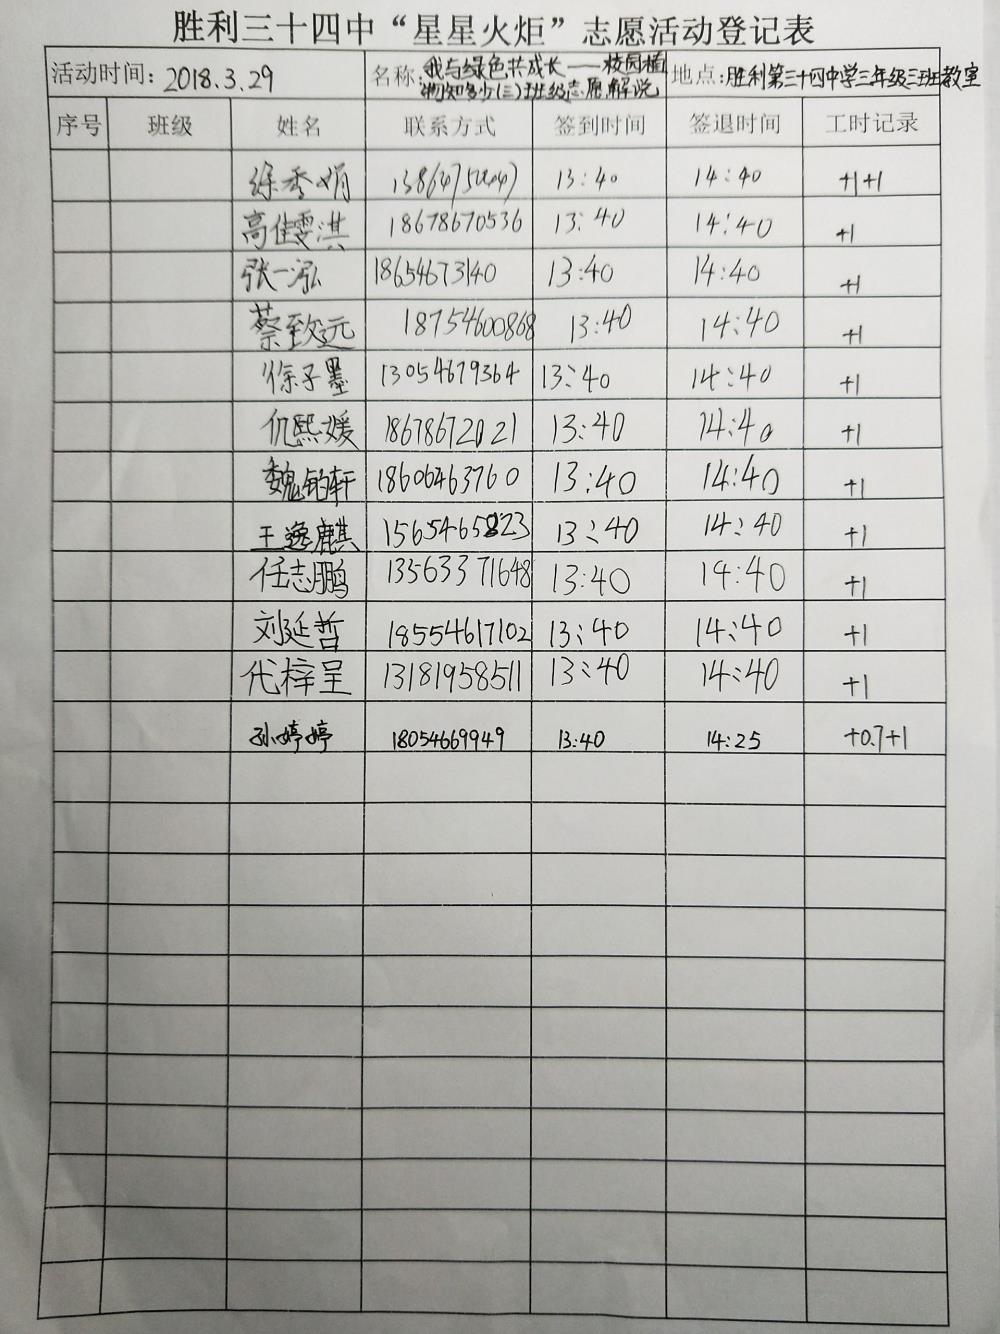 胜利三十四中“星星火炬”志愿活动登记表
活动时间: 2018.3.29 名称: 我与绿色共成长——校园植物知多少(三)班级志愿解说 地点: 胜利第三十四中学三年级三班教室
序号 班级 姓名 联系方式 签到时间 签退时间 工时记录
徐秀娟 13:40 14:40 +1+1
高佳雯淇 18678670536 13:40 14:40 +1
张一泓 18654673140 13:40 14:40 +1
蔡致远 18754600868 13:40 14:40 +1
徐子墨 13054679364 13:40 14:40 +1
仇熙媛 18678672021 13:40 14:40 +1
魏铂轩 18606463760 13:40 14:40 +1
王逸麒 15654655823 13:40 14:40 +1
任志鹏 13563371648 13:40 14:40 +1
刘延哲 18554617102 13:40 14:40 +1
代梓呈 13181958511 13:40 14:40 +1
孙婷婷 18054669949 13:40 14:25 +0.7+1